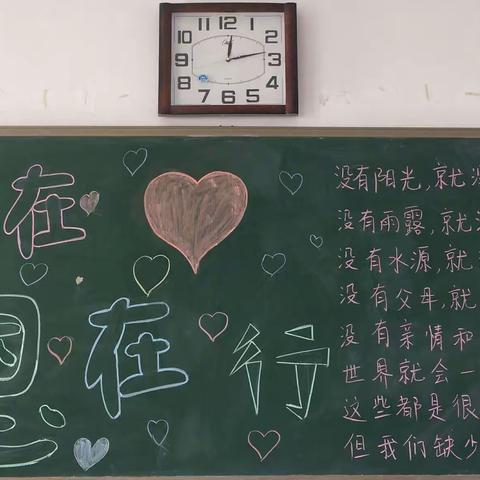 11 12 1
10 2
9 3
8 4
7 6 5
在
恩在行
没有阳光,就
没有雨露,就
没有水源,就
没有父母,就
没有亲情和
世界就会一
这些都是很
但我们缺少